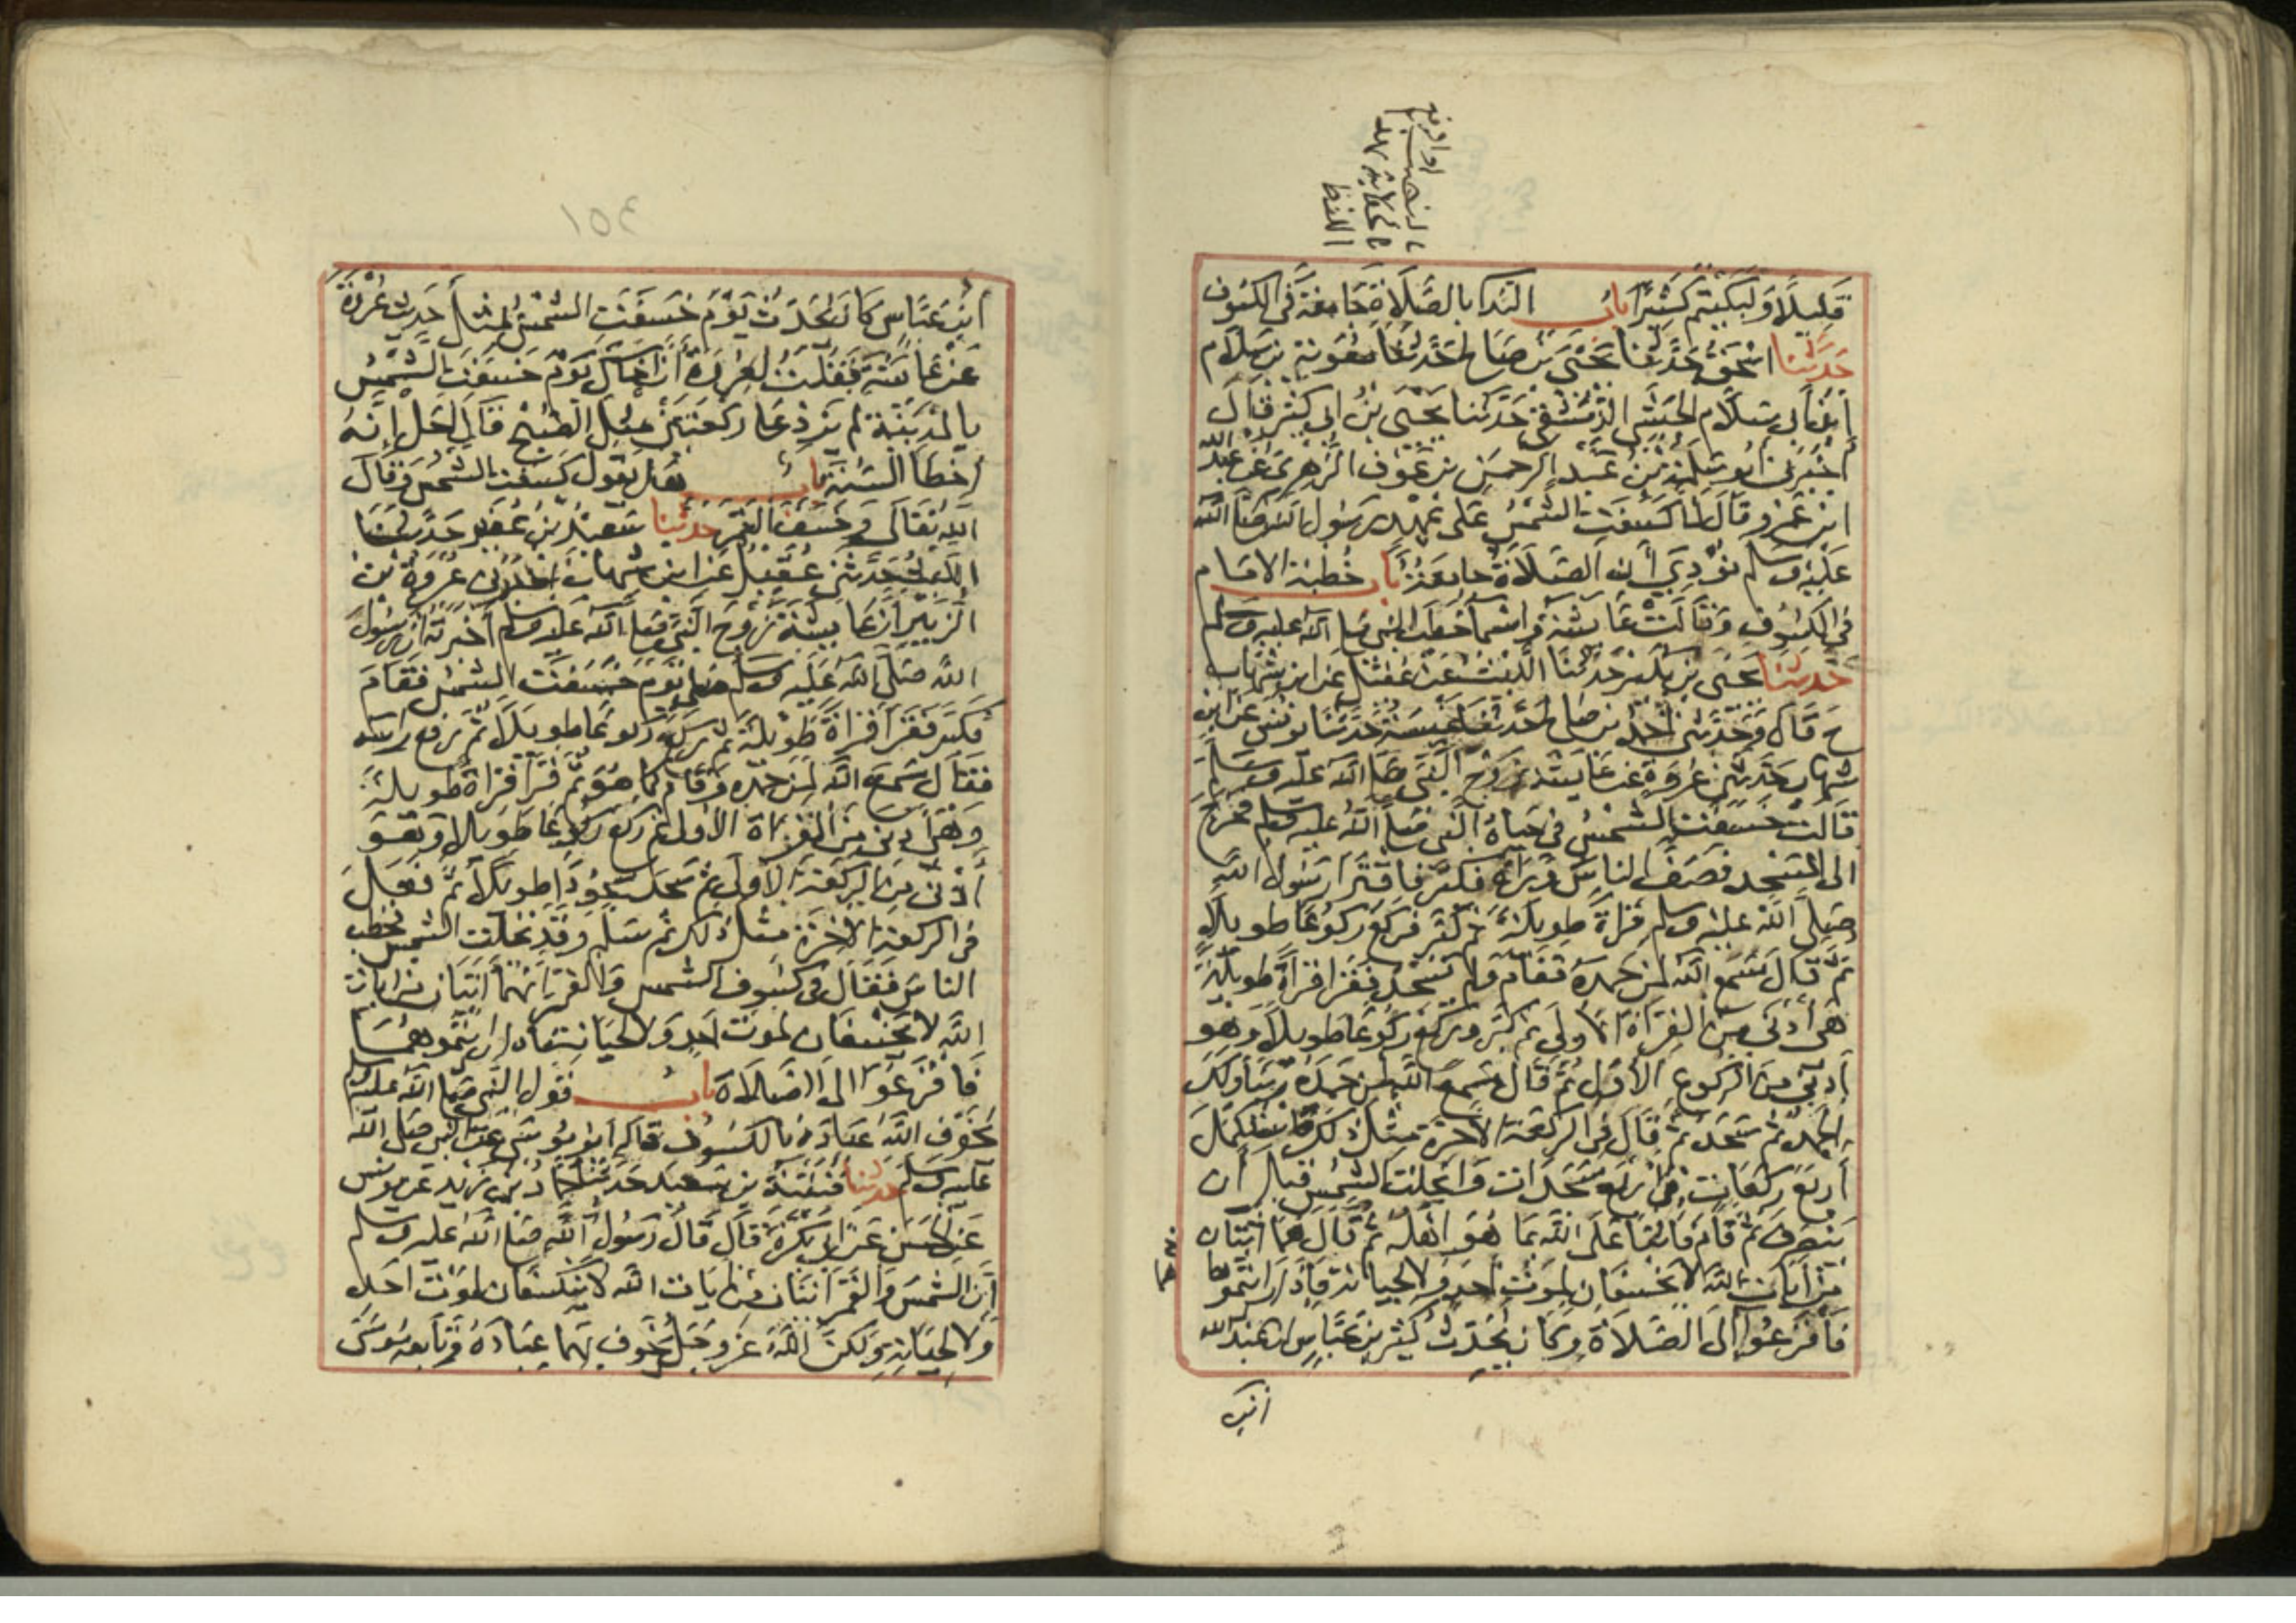 قليلا ولبكيتم كثيرا باب الندا بالصلاة جامعة في الكسوف
حدثنا اسحق حدثنا يحيى بن صالح حدثنا معوية بن سلام
ابن ابي سلام الحبشي الدمشقي حدثنا يحيى بن ابي كثير قال
اخبرني ابو سلمة بن عبد الرحمن بن عوف الزهري عن عبد الله
ابن عمرو قال لما كسفت الشمس على عهد رسول الله صلى الله
عليه وسلم نودي أن الصلاة جامعة باب خطبة الامام
في الكسوف وقالت عائشة واسما خطب النبي صلى الله عليه وسلم
حدثنا يحيى بن بكير حدثنا الليث عن عقيل عن ابن شهاب
ح قال وحدثني احمد بن صالح حدثنا عنبسة حدثنا يونس عن ابن
شهاب حدثني عروة عن عايشة زوج النبي صلى الله عليه وسلم
قالت خسفت الشمس في حياة النبي صلى الله عليه وسلم فخرج
الى المسجد فصف الناس وراه فكبر فاقترا رسول الله
صلى الله عليه وسلم قراة طويلة ثم كبر فركع ركوعا طويلا
ثم قال سمع الله لمن حمده فقام ولم يسجد فقرا قراة طويلة
هي أدنى من القراة الاولى ثم كبر وركع ركوعا طويلا وهو
أدنى من الركوع الأول ثم قال سمع الله لمن حمده ربنا ولك
الحمد ثم سجد ثم قال في الركعة الاخرة مثل ذلك فاستكمل
أربع ركعات في اربع سجدات وانجلت الشمس قبل أن
ينصرف ثم قام فاثنى على الله بما هو اهله ثم قال هما ايتان
من آيات الله لا يخسفان لموت احد ولا لحياته فإذا رايتموها
فافزعوا إلى الصلاة وكان يحدث كثير بن عباس ان عبد الله
ابن عباس كان يحدث يوم خسفت الشمس بمثل حديث عروة
عن عائشة فقلت لعروة ان اخاك يوم خسفت الشمس
بالمدينة لم يزد على ركعتين مثل الصبح قال اجل إنه
اخطا السنة باب هل يقول كسفت الشمس وقال
الله تعالى وخسف القمر حدثنا سعيد بن عفير حدثنا
الليث حدثني عقيل عن ابن شهاب اخبرني عروة بن
الزبير ان عايشة زوج النبي صلى الله عليه وسلم أخبرته ان رسول
الله صلى الله عليه وسلم صلى يوم خسفت الشمس فقام
فكبر فقرا قراة طويلة ثم ركع ركوعا طويلا ثم رفع راسه
فقال سمع الله لمن حمده وقام كما هو ثم قرا قراة طويلة
وهي أدنى من القراة الاولى ثم ركع ركوعا طويلا وهو
أدنى من الركعة الأولى ثم سجد سجودا طويلا ثم فعل
في الركعة الاخرة مثل ذلك ثم سلم وقد تجلت الشمس فخطب
الناس فقال في كسوف الشمس والقمر إنهما ايتان من ايات
الله لا يخسفان لموت احد ولا لحياته فاذا رايتموهما
فافزعوا الى الصلاة باب قول النبي صلى الله عليه وسلم
يخوف الله عباده بالكسوف قاله أبو موسى عن النبي صلى الله
عليه وسلم حدثنا قتيبة بن سعيد حدثنا حماد بن زيد عن يونس
عن الحسن عن ابي بكرة قال قال رسول الله صلى الله عليه وسلم
إن الشمس والقمر ايتان من ايات الله لا ينكسفان لموت احد
ولا لحياته ولكن الله عز وجل يخوف بهما عباده وتابعه موسى